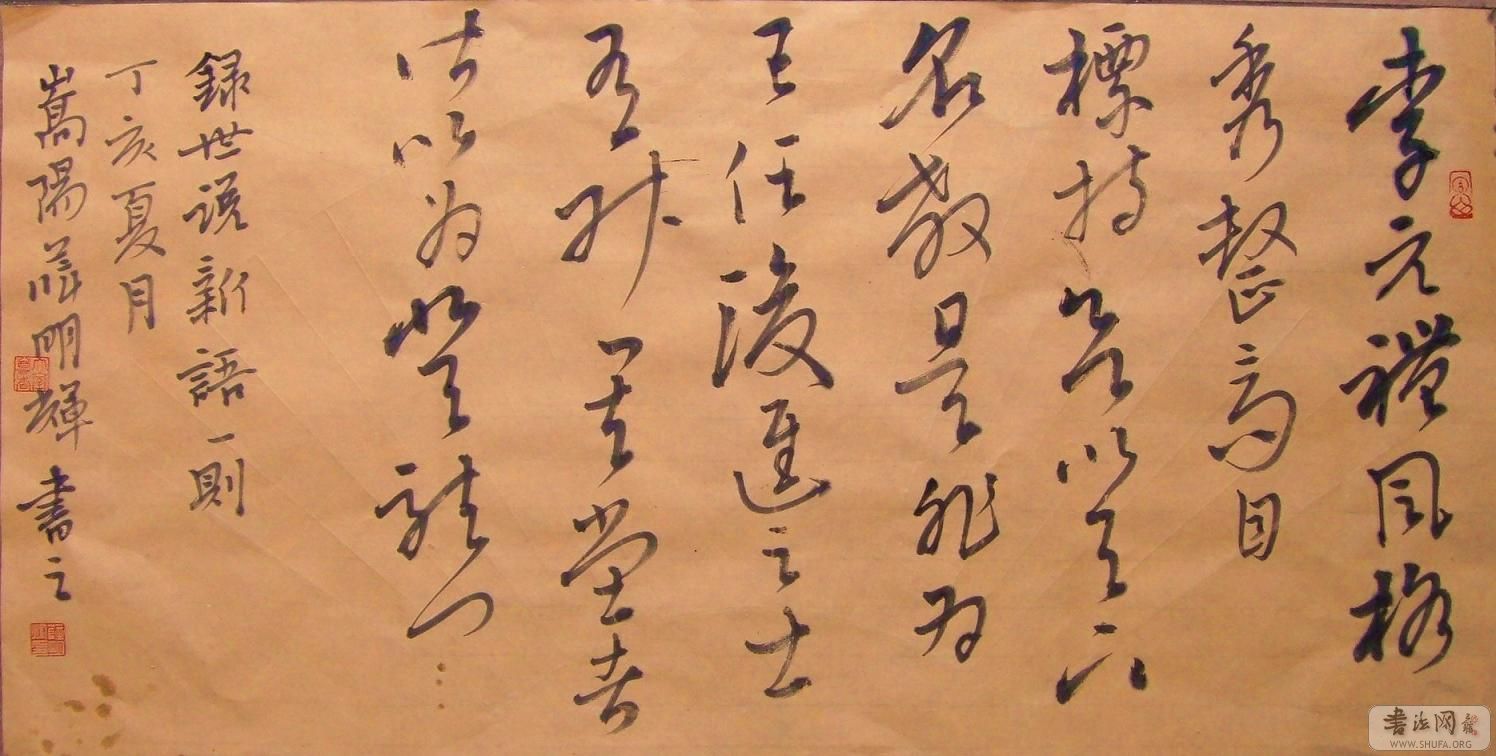 李元禮風格
秀整高自
標持欲以天下
名教是非為
己任後進之士
有升其堂者
皆以為登龍門
録世説新語一則
丁亥夏月
嵩陽明輝書之
書法网
WWW.SHUFA.ORG